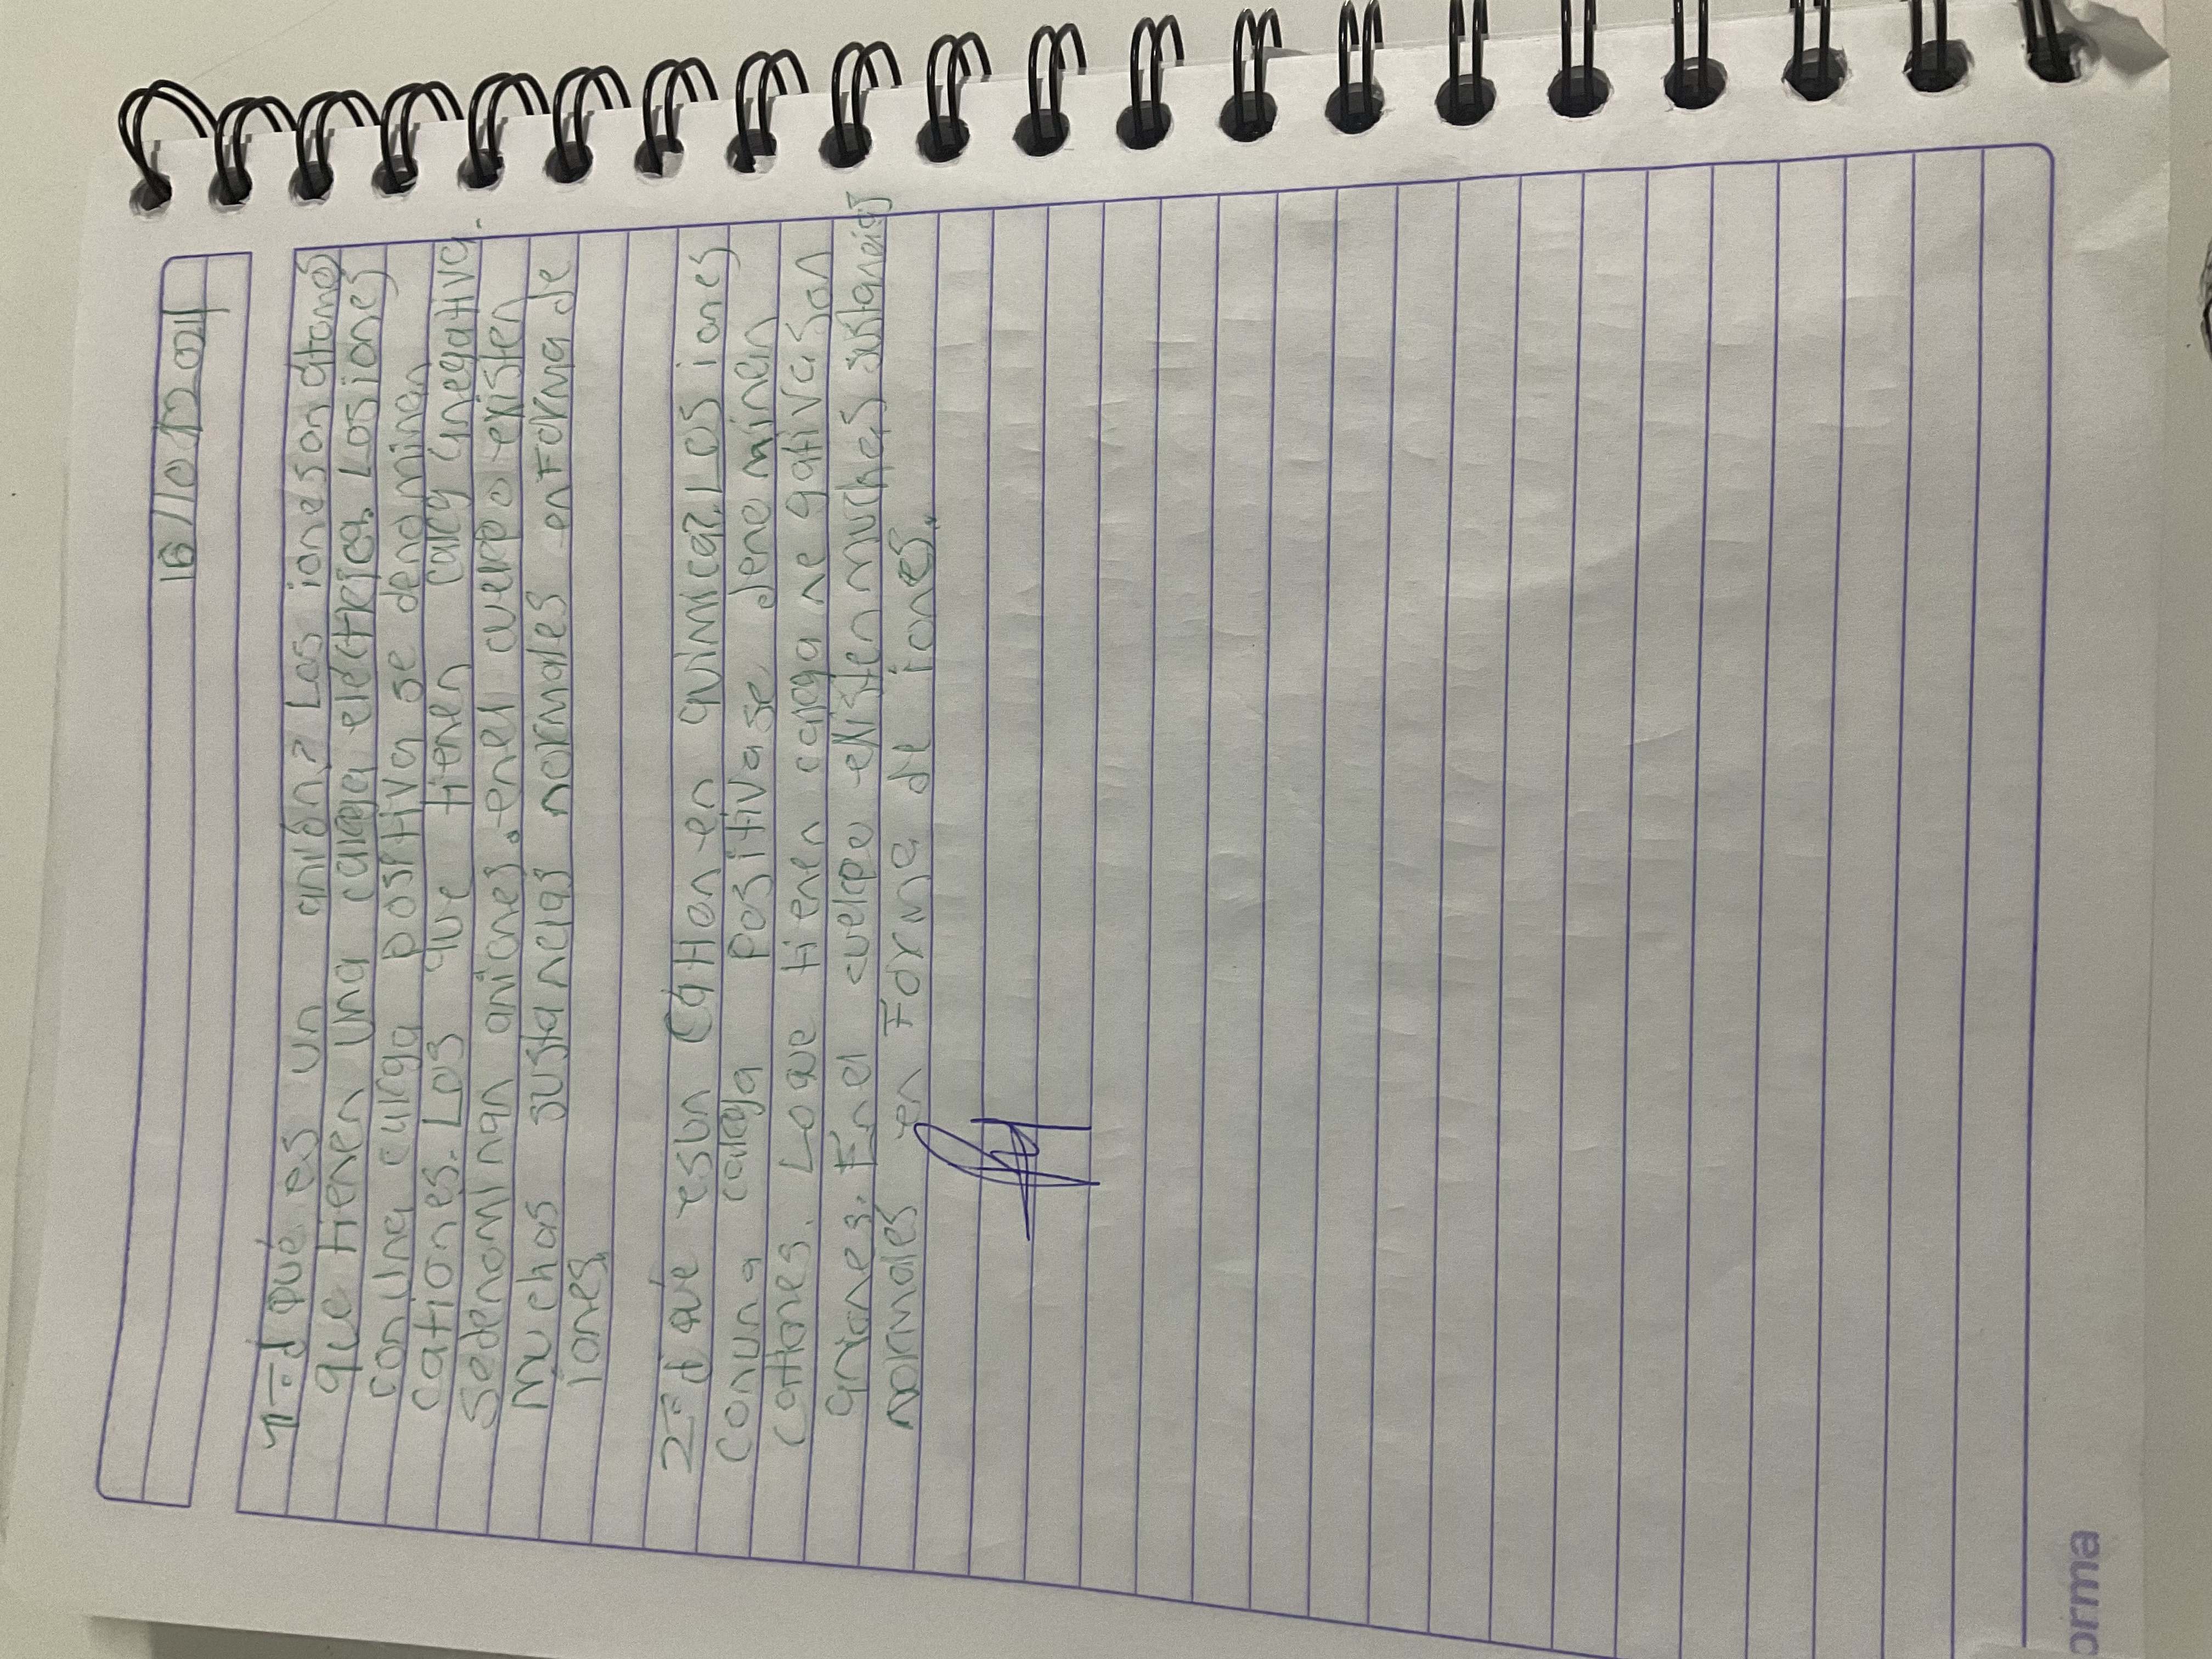 16/10/2024
1=¿Qué es un anión? Los iones son átomos
que tienen una carga eléctrica. Los iones
con una carga positiva se denominan
cationes. Los que tienen carga negativa
se denominan aniones. en el cuerpo existen
muchas sustancias normales en forma de
iones.
2=¿Qué es un Catión en química? Los iones
Con una carga positiva se denominan
Cationes. Lo que tienen carga negativa son
aniones. En el cuerpo existen muchas sustancias
normales en Forma de iones.
orma